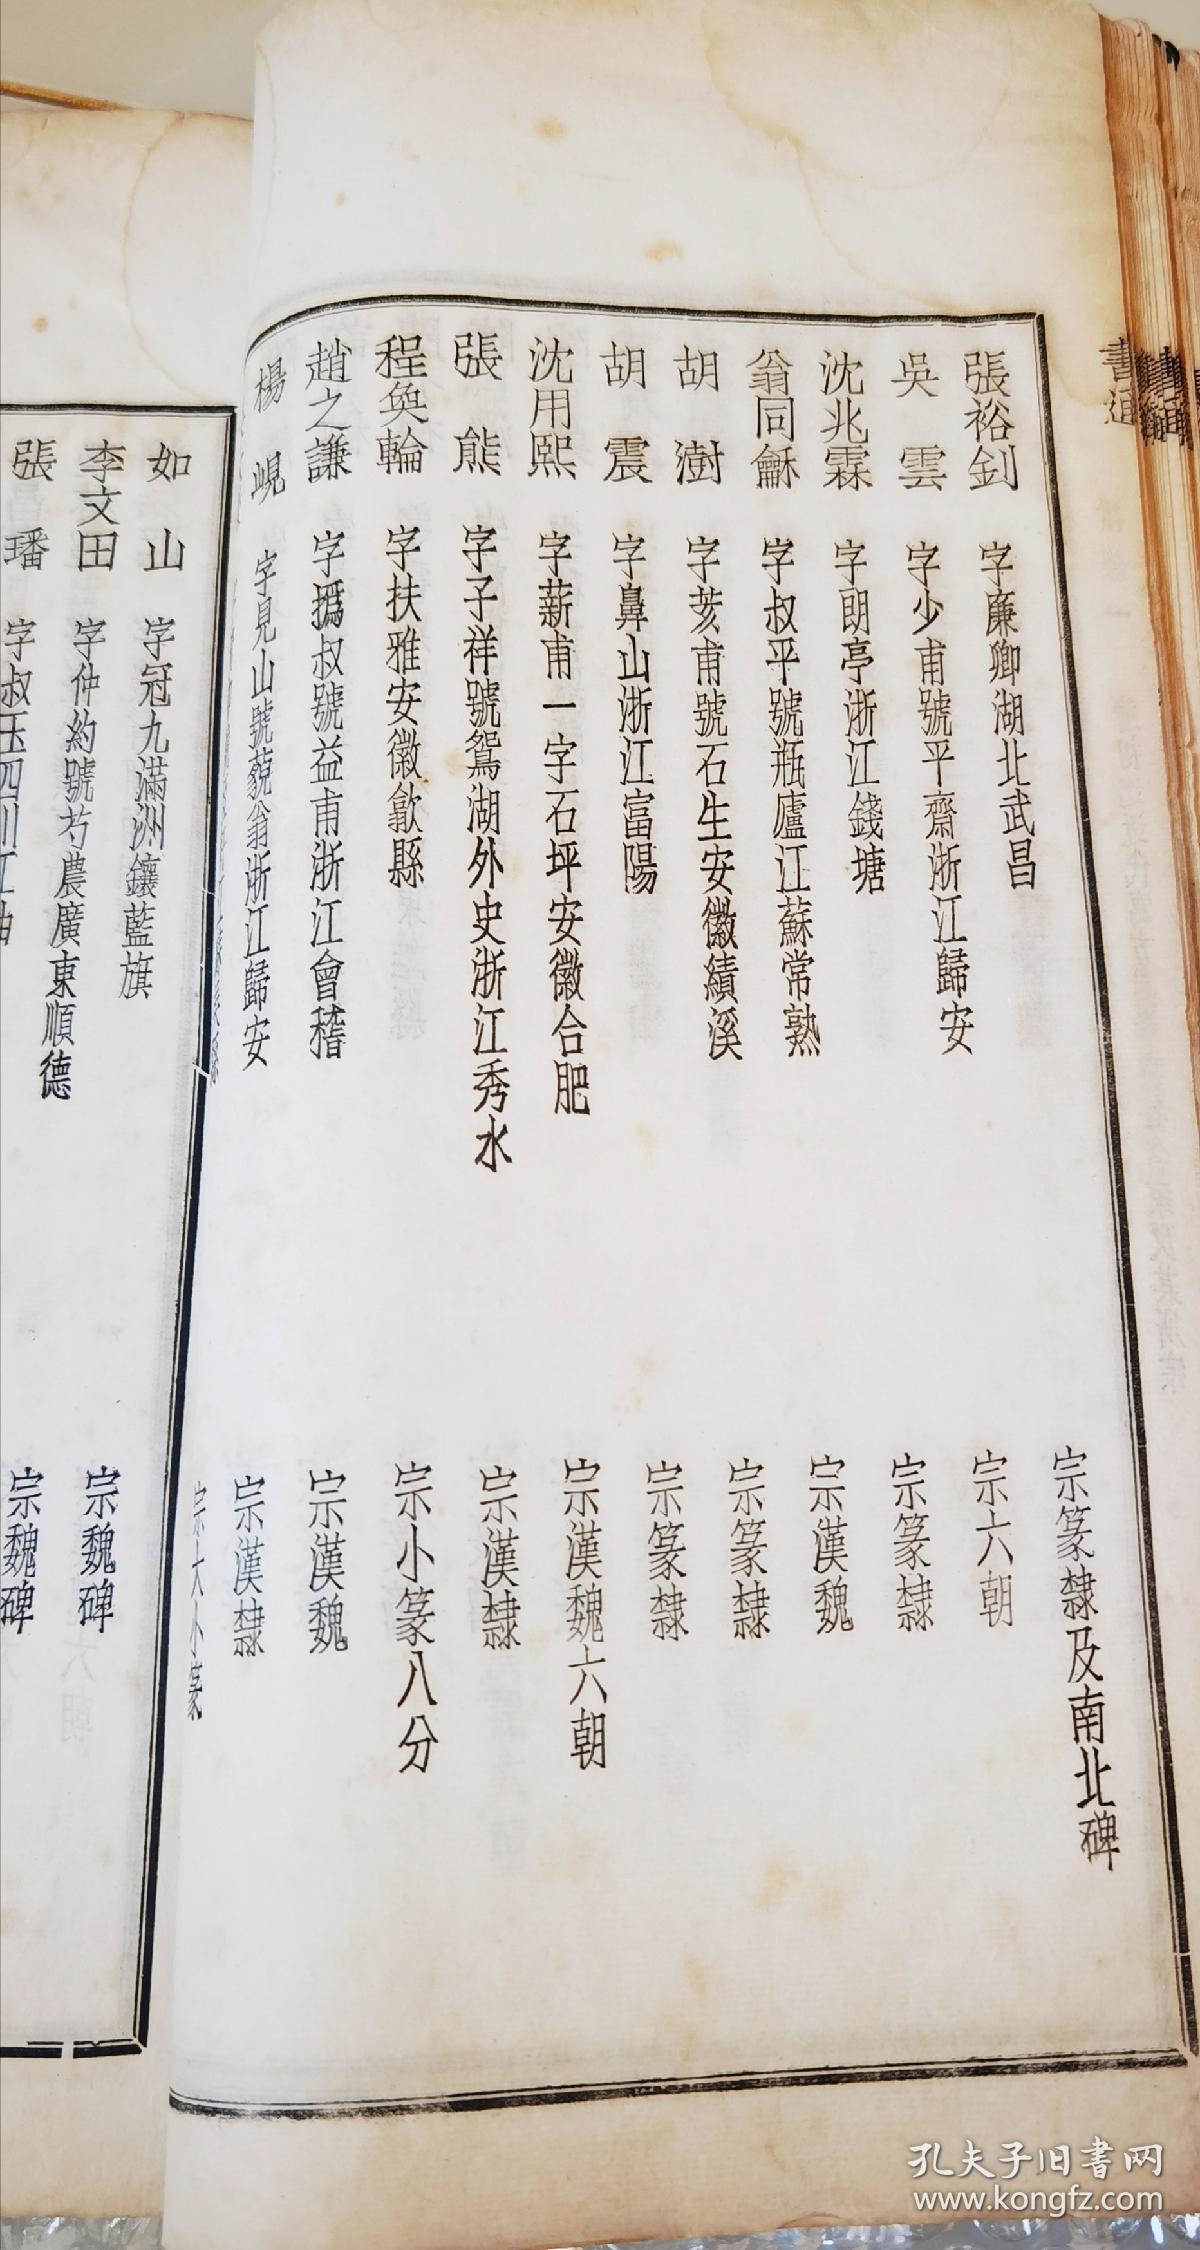 書通
張裕釗 字廉卿湖北武昌 宗篆隸及南北碑
吳雲 字少甫號平齋浙江歸安 宗六朝
沈兆霖 字朗亭浙江錢塘 宗篆隸
翁同龢 字叔平號瓶廬江蘇常熟 宗漢魏
胡澍 字荄甫號石生安徽績溪 宗篆隸
胡震 字鼻山浙江富陽 宗篆隸
沈用熙 字薪甫一字石坪安徽合肥 宗漢魏六朝
張熊 字子祥號鴛湖外史浙江秀水 宗漢隸
程奐輪 字扶雅安徽歙縣 宗小篆八分
趙之謙 字撝叔號益甫浙江會稽 宗漢魏
楊峴 字見山號藐翁浙江歸安 宗漢隸
宗大小篆
如山 字冠九滿洲鑲藍旗 宗魏碑
李文田 字仲約號芍農廣東順德 宗魏碑
張璠 字叔玉四川江油
孔夫子旧书网
www.kongfz.com